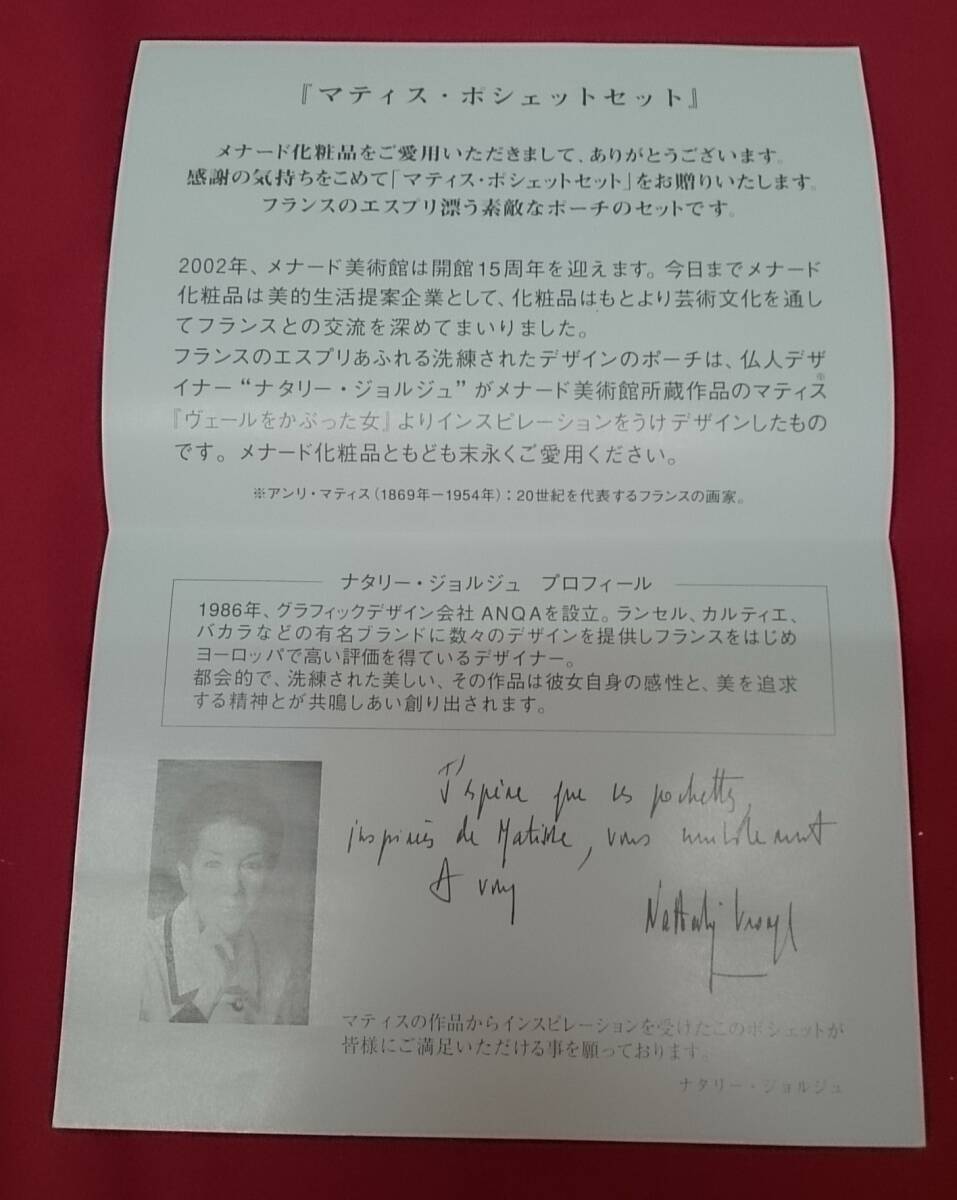 『マティス・ポシェットセット』
メナード化粧品をご愛用いただきまして、ありがとうございます。
感謝の気持ちをこめて「マティス・ポシェットセット」をお贈りいたします。
フランスのエスプリ漂う素敵なポーチのセットです。
2002年、メナード美術館は開館15周年を迎えます。今日までメナード
化粧品は美的生活提案企業として、化粧品はもとより芸術文化を通し
てフランスとの交流を深めてまいりました。
フランスのエスプリあふれる洗練されたデザインのポーチは、仏人デザ
イナー“ナタリー・ジョルジュ”がメナード美術館所蔵作品のマティス※
『ヴェールをかぶった女』よりインスピレーションをうけデザインしたもの
です。メナード化粧品ともども末永くご愛用ください。
※アンリ・マティス(1869年−1954年):20世紀を代表するフランスの画家。
ナタリー・ジョルジュ プロフィール
1986年、グラフィックデザイン会社 ANQAを設立。ランセル、カルティエ、
バカラなどの有名ブランドに数々のデザインを提供しフランスをはじめ
ヨーロッパで高い評価を得ているデザイナー。
都会的で、洗練された美しい、その作品は彼女自身の感性と、美を追求
する精神とが共鳴しあい創り出されます。
J'espère que ces pochettes,
inspirées de Matisse, vous
マティスの作品からインスピレーションを受けたこのポシェットが
皆様にご満足いただける事を願っております。
ナタリー・ジョルジュ